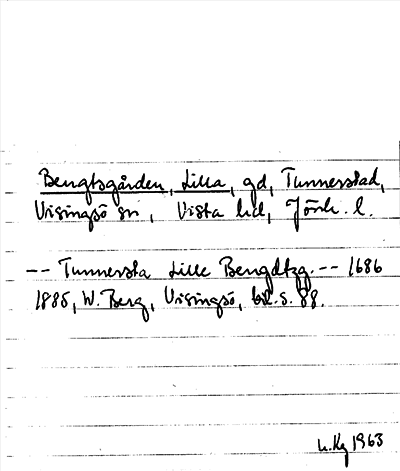 Bengtsgården, Lilla, gd, Tunnerstad,
Visingsö sn, Vista hd, Jönk. l.
-- Tunnersta Lille Bengdtzg. -- 1686
1885, W. Berg, Visingsö, bil. s. 88.
1963